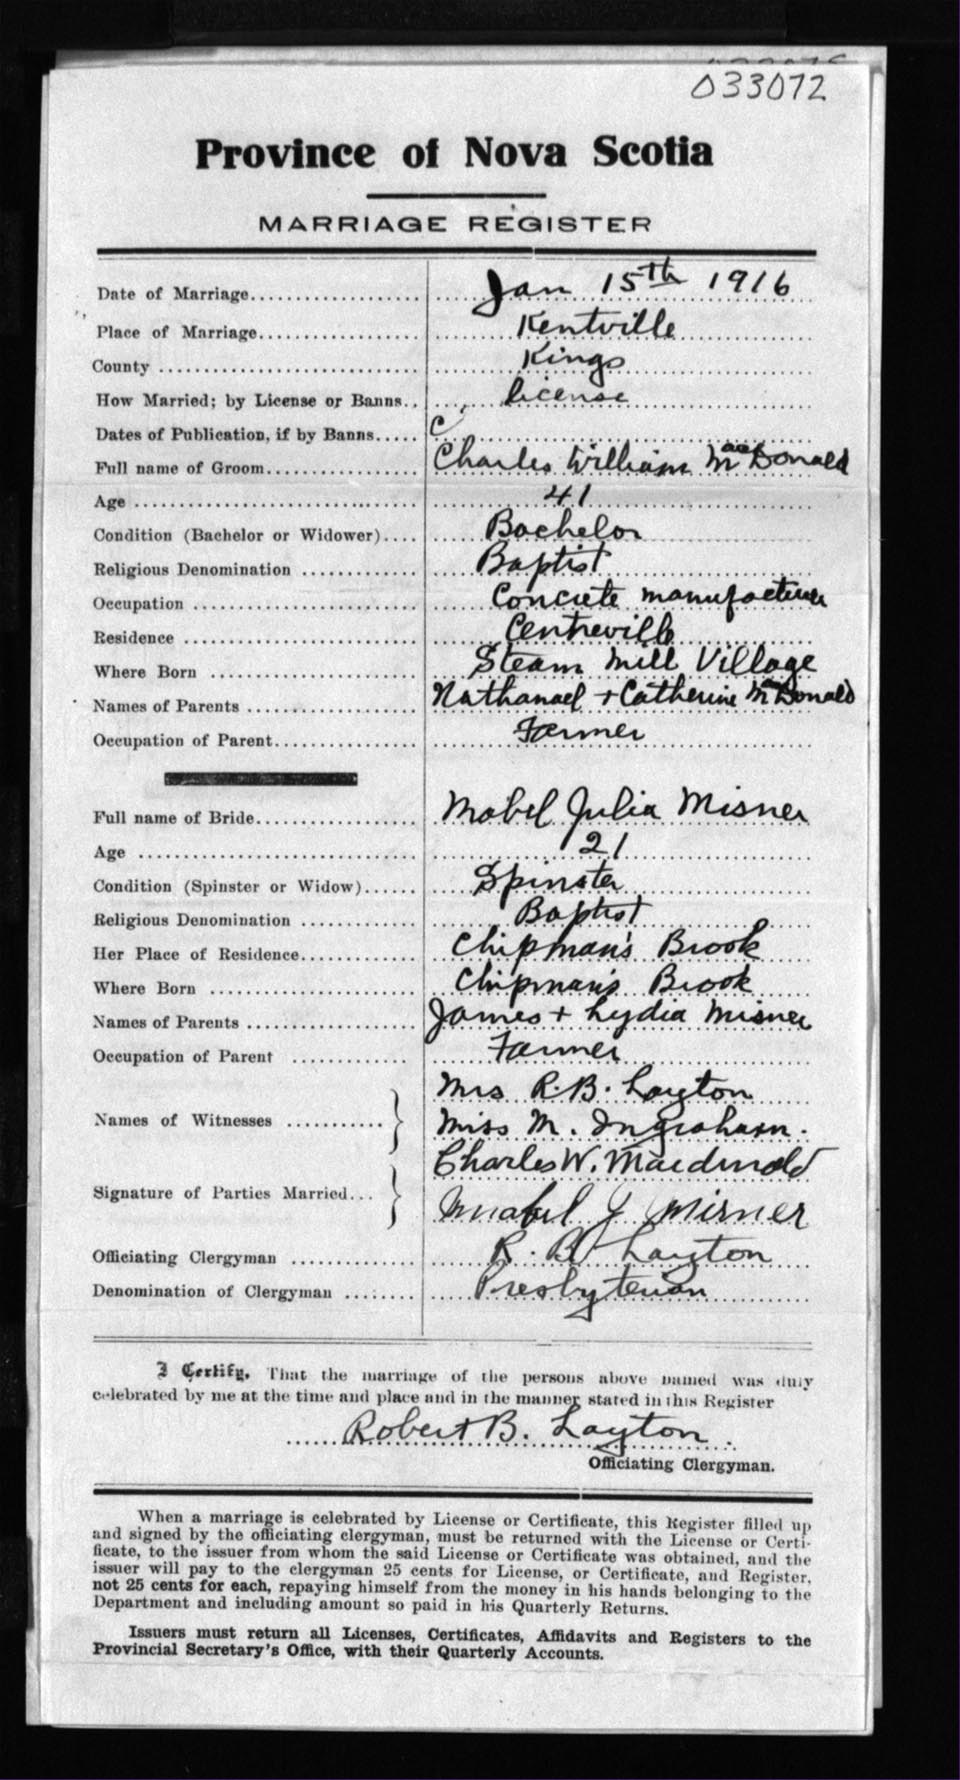 033072
Province of Nova Scotia
MARRIAGE REGISTER
Date of Marriage.................... Jan 15th 1916
Place of Marriage................... Kentville
County .............................. Kings
How Married; by License or Banns.. license
Dates of Publication, if by Banns.....
Full name of Groom.................. Charles William MacDonald
Age ................................. 41
Condition (Bachelor or Widower).... Bachelor
Religious Denomination .............. Baptist
Occupation .......................... Concrete manufacturer
Residence ........................... Centreville
Where Born ........................ Steam Mill Village
Names of Parents .................... Nathanael + Catherine MacDonald
Occupation of Parent................. Farmer
Full name of Bride................... Mabel Julia Misner
Age ................................. 21
Condition (Spinster or Widow)...... Spinster
Religious Denomination .............. Baptist
Her Place of Residence.............. Chipman's Brook
Where Born ........................ Chipman's Brook
Names of Parents .................... James + Lydia Misner
Occupation of Parent .............. Farmer
Names of Witnesses ............ Mrs R. B. Layton
Miss M. Ingraham.
Signature of Parties Married... Charles W. Macdonald
Mabel J Misner
Officiating Clergyman .............. R. B. Layton
Denomination of Clergyman ........ Presbyterian
I Certify, That the marriage of the persons above named was duly
celebrated by me at the time and place and in the manner stated in this Register
Robert B. Layton.
Officiating Clergyman.
When a marriage is celebrated by License or Certificate, this Register filled up
and signed by the officiating clergyman, must be returned with the License or Certi-
ficate, to the issuer from whom the said License or Certificate was obtained, and the
issuer will pay to the clergyman 25 cents for License, or Certificate, and Register,
not 25 cents for each, repaying himself from the money in his hands belonging to the
Department and including amount so paid in his Quarterly Returns.
Issuers must return all Licenses, Certificates, Affidavits and Registers to the
Provincial Secretary's Office, with their Quarterly Accounts.